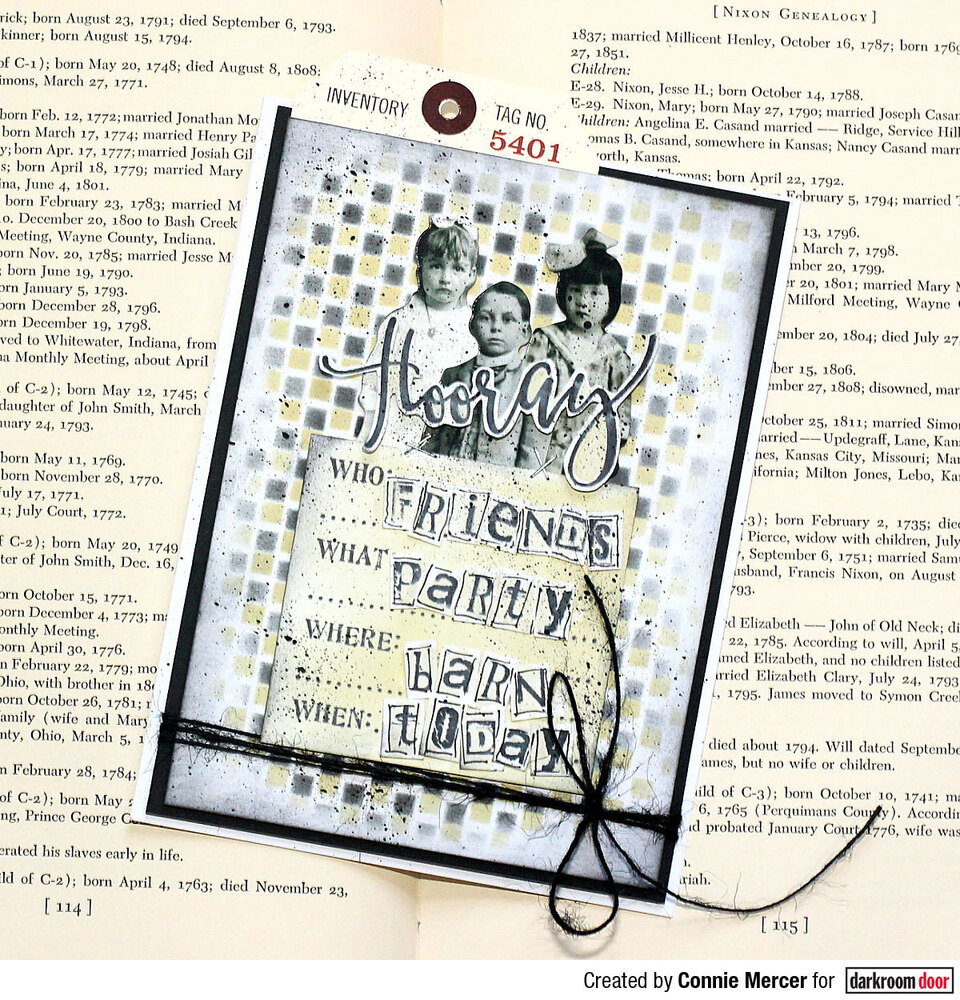 rick; born August 23, 1791; died September 6, 1793.
kinner; born August 15, 1794.
of C-1); born May 20, 1748; died August 8, 1808;
imons, March 27, 1771.
born Feb. 12, 1772; married Jonathan Mo
born March 17, 1774; married Henry Pa
y; born Apr. 17, 1777; married Josiah Gil
s; born April 18, 1779; married Mary
ina, June 4, 1801.
born February 23, 1783; married M
10. December 20, 1800 to Bash Creek
Meeting, Wayne County, Indiana.
orn Nov. 20, 1785; married Jesse M
; born June 19, 1790.
orn January 5, 1793.
born December 28, 1796.
rn December 19, 1798.
ved to Whitewater, Indiana, from
na Monthly Meeting, about April
d of C-2); born May 12, 1745;
daughter of John Smith, March
nuary 24, 1793.
born May 11, 1769.
born November 28, 1770.
July 17, 1771.
1; July Court, 1772.
of C-2); born May 20, 1749
ter of John Smith, Dec. 16,
orn October 15, 1771.
born December 4, 1773; m
onthly Meeting.
born April 30, 1776.
n February 22, 1779; mo
Ohio, with brother in 18
born October 26, 1781;
family (wife and Mary
nty, Ohio, March 5, 1
n February 28, 1784;
of C-2); born May
ng, Prince George C
erated his slaves early in life.
ld of C-2); born April 4, 1763; died November 23,
[ 114 ]
INVENTORY TAG NO.
5401
Hooray
WHO: FRiENDS
WHAT PaRty
WHERE: baRN
WHEN: tODay
[ NIXON GENEALOGY ]
1837; married Millicent Henley, October 16, 1787; born 176
27, 1851.
Children:
E-28. Nixon, Jesse H.; born October 14, 1788.
E-29. Nixon, Mary; born May 27, 1790; married Joseph Casan
Children: Angelina E. Casand married —— Ridge, Service Hill
omas B. Casand, somewhere in Kansas; Nancy Casand marr
worth, Kansas.
Thomas; born April 22, 1792.
February 5, 1794; married T
13, 1796.
March 7, 1798.
ber 20, 1799.
r 20, 1801; married Mary M
Milford Meeting, Wayne C
ember 20, 1804; died July 27,
ber 15, 1806.
ember 27, 1808; disowned, mar
October 25, 1811; married Simo
arried——Updegraff, Lane, Kan
nes, Kansas City, Missouri; Mar
ifornia; Milton Jones, Lebo, Ka
-3); born February 2, 1735; die
Pierce, widow with children, July
, September 6, 1751; married Sam
usband, Francis Nixon, on August
793.
d Elizabeth —— John of Old Neck; di
22, 1785. According to will, April 5,
med Elizabeth, and no children listed
rried Elizabeth Clary, July 24, 1793
, 1795. James moved to Symon Cree
died about 1794. Will dated Septembe
ames, but no wife or children.
ild of C-3); born October 10, 1741; m
6, 1765 (Perquimans County). Accordin
d probated January Court 1776, wife was
riah.
[ 115 ]
Created by Connie Mercer for darkroom door